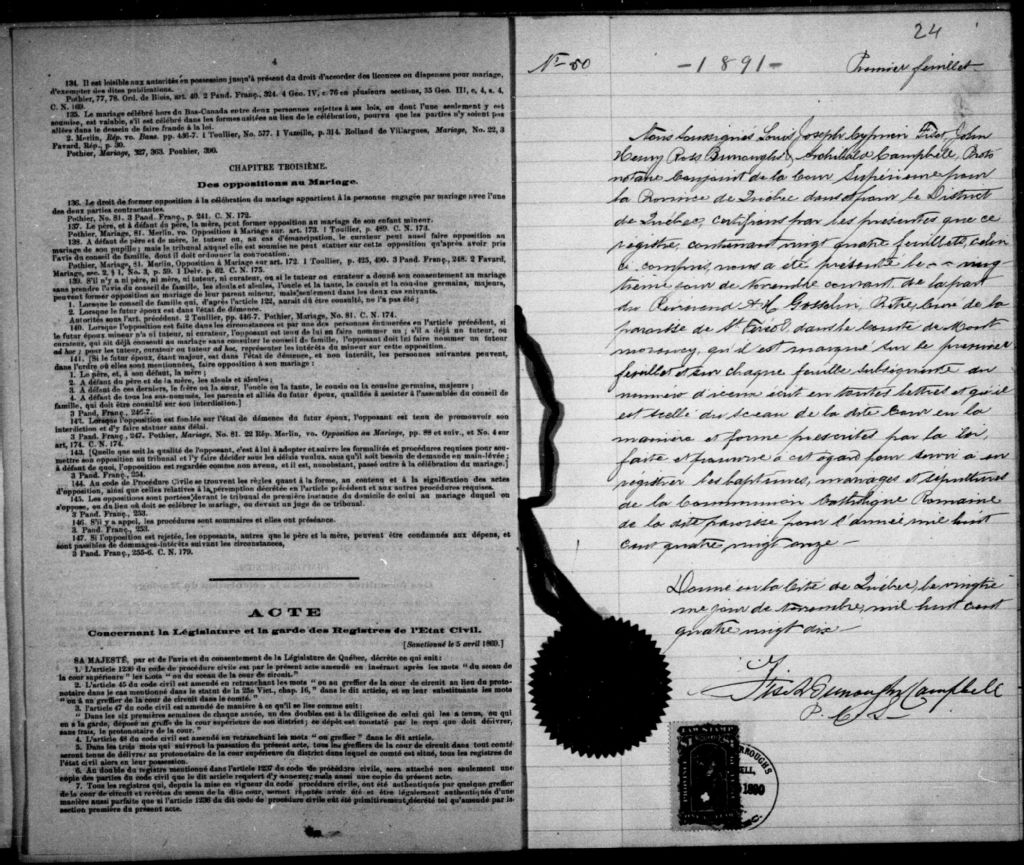 4
134. Il est loisible aux autorités en possession jusqu'à présent du droit d'accorder des licences ou dispenses pour mariage,
d'exempter des dites publications.
Pothier, 77, 78. Ord. de Blois, art. 40. 2 Pand. Franç., 324. 4 Geo. IV, c. 76 en plusieurs sections, 35 Geo. III, c. 4, s. 4,
C. N. 169.
135. Le mariage célébré hors du Bas-Canada entre deux personnes sujettes à ses lois, ou dont l'une seulement y est
soumise, est valable, s'il est célébré dans les formes usitées au lieu de la célébration, pourvu que les parties n'y soient pas
allées dans le dessein de faire fraude à la loi.
2. Merlin, Rép. vo. Bans. pp. 436-7. 1 Toullier, No. 577. 1 Vazeille, p. 314. Rolland de Villargues, Mariage, No. 22, 3
Favard, Rép., p. 30.
Pothier, Mariage, 327, 363. Pouhier, 390.
CHAPITRE TROISIÈME.
Des oppositions au Mariage.
136. Le droit de former opposition à la célébration du mariage appartient à la personne engagée par mariage avec l'une
des deux parties contractantes.
Pothier, No. 81. 3 Pand. Franç., p. 241. C. N. 172.
137. Le père, et à défaut du père, la mère, peut former opposition au mariage de son enfant mineur.
Pothier, Mariage, 81. Merlin, vo. Opposition à Mariage sur. art. 173. 1 Toullier, p. 489. C. N. 174.
138. A défaut de père et de mère, le tuteur ou, au cas d'émancipation, le curateur peut aussi faire opposition au
mariage de son pupille; mais le tribunal auquel elle est soumise ne peut statuer sur cette opposition qu'après avoir pris
l'avis du conseil de famille, dont il doit ordonner la convocation.
Pothier, Mariage, 81. Merlin, Opposition à Mariage sur art. 172. 1 Toullier, p. 425, 490. 3 Pand. Franç., 248. 2 Favard,
Mariage, sec. 2, § 1, No. 3, p. 59. 1 Delv. p. 62. C. N. 175.
139. S'il n'y a ni père, ni mère, ni tuteur, ni curateur, ou si le tuteur ou curateur a donné son consentement au mariage
sans prendre l'avis du conseil de famille, les aïeuls et aïeules, l'oncle et la tante, le cousin et la cousine germains, majeurs,
peuvent former opposition au mariage de leur parent mineur, mais seulement dans les deux cas suivants.
1. Lorsque le conseil de famille qui, d'après l'article 122, aurait dû être consulté, ne l'a pas été;
2. Lorsque le futur époux est dans l'état de démence.
Autorités sous l'art. précédent. 2 Toullier, pp. 446-7. Pothier, Mariage, No. 81. C. N. 174.
140. Lorsque l'opposition est faite dans les circonstances et par une des personnes énumérées en l'article précédent, si
le futur époux mineur n'a ni tuteur, ni curateur, l'opposant est tenu de lui en faire nommer un; s'il a déjà un tuteur, ou
curateur, qui ait déjà consenti au mariage sans consulter le conseil de famille, l'opposant doit lui faire nommer un tuteur
ad hoc; pour les tuteur, curateur ou tuteur ad hoc, représenter les intérêts du mineur sur cette opposition.
141. [Si le futur époux, étant majeur, est dans l'état de démence, et non interdit, les personnes suivantes peuvent,
dans l'ordre où elles sont mentionnées, faire opposition à son mariage:
1. Le père, et, à son défaut, la mère;
2. A défaut du père et de la mère, les aïeuls et aïeules;
3. A défaut de ces derniers, le frère ou la sœur, l'oncle ou la tante, le cousin ou la cousine germains, majeurs;
4. A défaut de tous les sus-nommés, les parents et alliés du futur époux, qualifiés à assister à l'assemblée du conseil de
famille, qui doit être consulté sur son interdiction.]
3 Pand. Franç., 246-7.
142. Lorsque l'opposition est fondée sur l'état de démence du futur époux, l'opposant est tenu de promouvoir son
interdiction et d'y faire statuer sans délai.
3 Pand. Franç., 247. Pothier, Mariage, No. 81. 22 Rép. Merlin, vo. Opposition au Mariage, pp. 88 et suiv., et No. 4 sur
art. 174. C. N. 174.
143. [Quelle que soit la qualité de l'opposant, c'est à lui à adopter et suivre les formalités et procédures requises pour soumettre
son opposition au tribunal et l'y faire décider sous les délais voulus, sans qu'il soit besoin de demande en main-levée;
à défaut de quoi, l'opposition est regardée comme non avenue, et il est, nonobstant, passé outre à la célébration du mariage.]
3 Pand. Franç., 254.
144. Au code de Procédure Civile se trouvent les règles quant à la forme, au contenu et à la signification des actes
d'opposition, ainsi que celles relatives à la péremption décrétée en l'article précédent et aux autres procédures requises.
145. Les oppositions sont portées devant le tribunal de première instance du domicile de celui au mariage duquel on
s'oppose, ou du lieu où doit se célébrer le mariage, ou devant un juge de ce tribunal.
3 Pand. Franç., 253.
146. S'il y a appel, les procédures sont sommaires et elles ont préséance.
3 Pand. Franç., 253.
147. Si l'opposition est rejetée, les opposants, autres que le père et la mère, peuvent être condamnés aux dépens, et
sont passibles de dommages-intérêts suivant les circonstances,
3 Pand. Franç., 255-6. C. N. 179.
ACTE
Concernant la Législature et la garde des Registres de l'Etat Civil.
[Sanctionné le 5 avril 1869.]
SA MAJESTÉ, par et de l'avis et du consentement de la Législature de Québec, décrète ce qui suit:
1. L'article 1236 du code de procédure civile est par le présent acte amendé en insérant après les mots "du sceau de
la cour supérieure" les mots "ou du sceau de la cour de circuit."
2. L'article 45 du code civil est amendé en retranchant les mots "ou au greffier de la cour de circuit au lieu du protonotaire
dans le cas mentionné dans le statut de la 25e Vict., chap. 16," dans le dit article, et en leur substituant les mots
"ou à un greffier de la cour de circuit dans le comté."
3. L'article 47 du code civil est amendé de manière à ce qu'il se lise comme suit:
"Dans les six premières semaines de chaque année, un des doubles est à la diligence de celui qui les a tenus, ou qui
en a la garde, déposé au greffe de la cour supérieure de son district; ce dépôt est constaté par le reçu que doit délivrer,
sans frais, le protonotaire de la cour."
4. L'article 48 du code civil est amendé en retranchant les mots "ou greffier" dans le dit article.
5. Dans les trois mois qui suivront la passation du présent acte, tous les greffiers de la cour de circuit dans tout comté
seront tenus de délivrer au protonotaire de la cour supérieure du district dans lequel ce comté est situé, tous les registres de
l'état civil alors en leur possession.
6. Au double du registre mentionné dans l'article 1237 du code de procédure civile, sera attaché non seulement une
copie des parties du code civil que le dit article requiert d'y annexer, mais aussi une copie du présent acte.
7. Tous les registres qui, depuis la mise en vigueur du code procédure civile, ont été authentiqués par quelque greffier
de la cour de circuit et revêtus du sceau de la dite cour, seront réputés avoir été et être légalement authentiqués d'une
manière aussi parfaite que si l'article 1236 du dit code de procédure civile eût été primitivement décrété tel qu'amendé par la
section première du présent acte.
24
No 50
-1891-
Premier feuillet
Nous soussignés Louis Joseph Cyprien Fiset, John
Henry Ross Burroughs, Archibald Campbell, Proto
notaire Conjoint de la Cour Supérieure pour
la Province de Québec dans et pour le District
de Québec, certifions par les présentes que ce
registre, contenant vingt quatre feuillets, celui
ci compris, nous a été présenté le ving
tième jour de novembre courant de la part
du Révérend A. H. Gosselin, Prêtre, Curé de la
paroisse de St Féréol, dans le Comté de Mont
morency, qu'il est marqué sur le premier
feuillet et sur chaque feuille subséquente du
numéro d'icelui écrit en toutes lettres et qu'il
est scellé du sceau de la dite Cour en la
manière et forme prescrites par la loi,
faite et pourvue à cet égard pour servir à en
registrer les baptêmes, mariages et sépultures
de la Communion Catholique Romaine
de la dite paroisse pour l'année mil huit
cent quatre vingt onze
Donné en la Cité de Québec, le vingtiè
me jour de novembre, mil huit cent
quatre vingt dix
Fiset Burroughs Campbell
P. C. S.
LAW STAMP
BURROUGHS
1890